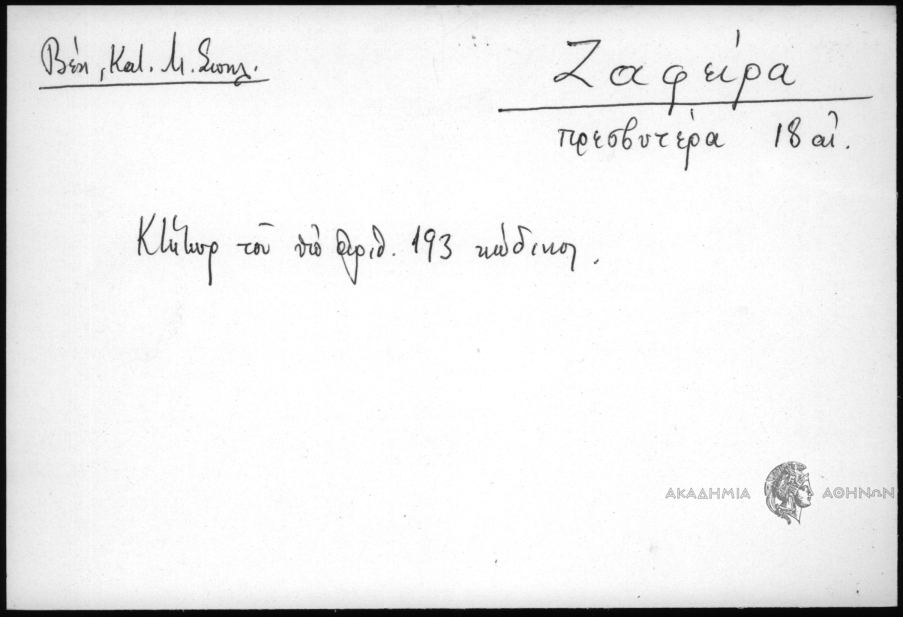 Βέη, Κατ. Μ. Σπηλ.
Ζαφείρα
πρεσβυτέρα 18 αἰ.
Κτήτωρ τοῦ ὑπ' ἀριθ. 193 κώδικος.
ΑΚΑΔΗΜΙΑ ΑΘΗΝΩΝ